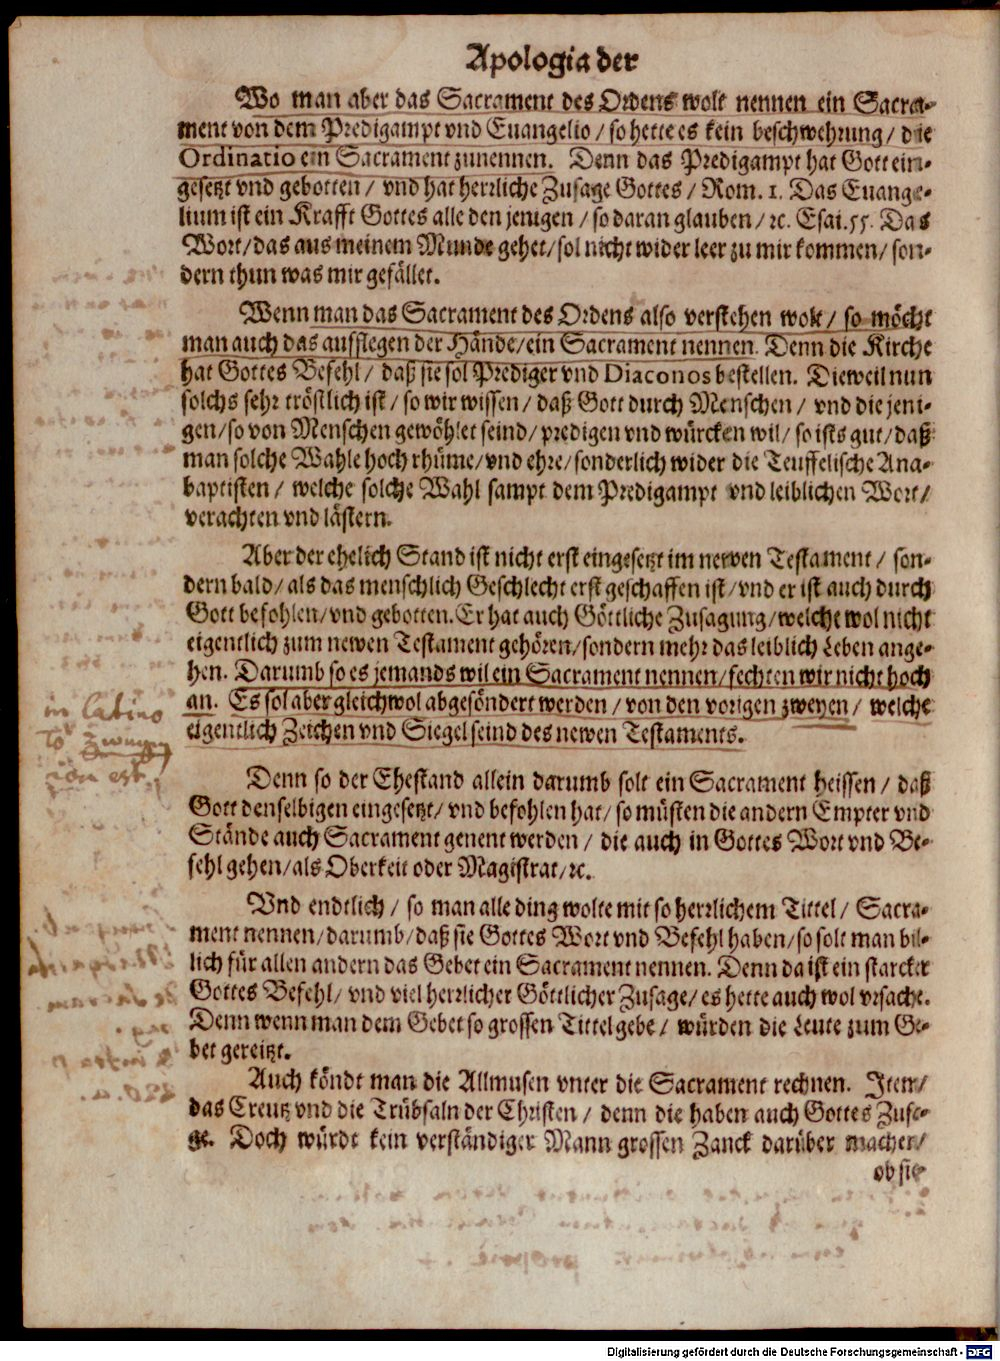 Apologia der
Wo man aber das Sacrament des Ordens wolt nennen ein Sacra-
ment von dem Predigampt vnd Euangelio / so hette es kein beschwehrung / die
Ordinatio ein Sacrament zunennen. Denn das Predigampt hat Gott ein-
gesetzt vnd gebotten / vnd hat herrliche Zusage Gottes / Rom. 1. Das Euange-
lium ist ein Krafft Gottes alle den jenigen / so daran glauben / ꝛc. Esai. 55. Das
Wort / das aus meinem Munde gehet / sol nicht wider leer zu mir kommen / son-
dern thun was mir gefället.
Wenn man das Sacrament des Ordens also verstehen wolt / so möcht
man auch das aufflegen der Hände / ein Sacrament nennen. Denn die Kirche
hat Gottes Befehl / daß sie sol Prediger vnd Diaconos bestellen. Dieweil nun
solchs sehr tröstlich ist / so wir wissen / daß Gott durch Menschen / vnd die jeni-
gen / so von Menschen gewöhlet seind / predigen vnd würcken wil / so ists gut / daß
man solche Wahle hoch rhüme / vnd ehre / sonderlich wider die Teuffelische Ana-
baptisten / welche solche Wahl sampt dem Predigampt vnd leiblichen Wort /
verachten vnd lästern.
Aber der ehelich Stand ist nicht erst eingesetzt im newen Testament / son-
dern bald / als das menschlich Geschlecht erst geschaffen ist / vnd er ist auch durch
Gott befohlen / vnd gebotten. Er hat auch Göttliche Zusagung / welche wol nicht
eigentlich zum newen Testament gehören / sondern mehr das leiblich Leben ange-
hen. Darumb so es jemands wil ein Sacrament nennen / fechten wir nicht hoch
an. Es sol aber gleichwol abgesöndert werden / von den vorigen zweyen / welche
eigentlich Zeichen vnd Siegel seind des newen Testaments.
in latino
To zweyen
non est.
Denn so der Ehestand allein darumb solt ein Sacrament heissen / daß
Gott denselbigen eingesetzt / vnd befohlen hat / so müsten die andern Empter vnd
Stände auch Sacrament genent werden / die auch in Gottes Wort vnd Be-
fehl gehen / als Oberkeit oder Magistrat / ꝛc.
Vnd endtlich / so man alle ding wolte mit so herrlichem Tittel / Sacra-
ment nennen / darumb / daß sie Gottes Wort vnd Befehl haben / so solt man bil-
lich für allen andern das Gebet ein Sacrament nennen. Denn da ist ein starcker
Gottes Befehl / vnd viel herrlicher Göttlicher Zusage / es hette auch wol vrsache.
Denn wenn man dem Gebet so grossen Tittel gebe / würden die Leute zum Ge-
bet gereitzt.
Auch köndt man die Allmusen vnter die Sacrament rechnen. Item /
das Creutz vnd die Trübsaln der Christen / denn die haben auch Gottes Zusa-
ge. Doch würdt kein verständiger Mann grossen Zanck darüber machen /
ob sie
Digitalisierung gefördert durch die Deutsche Forschungsgemeinschaft - DFG